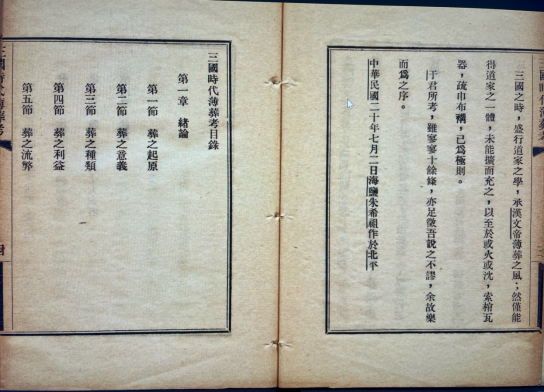 三國之時，盛行道家之學，承漢文帝薄葬之風；然僅能
得道家之一體，未能擴而充之，以至於或火或沈，索棺瓦
器，疏巾布稱，已爲極則。
于君所考，雖寥寥十餘條，亦足徵吾說之不謬，余故樂
而爲之序。
中華民國二十年七月二日海鹽朱希祖作於北平
三國時代薄葬考目錄
第一章　緒論
第一節　葬之起原
第二節　葬之意義
第三節　葬之種類
第四節　葬之利益
第五節　葬之流弊